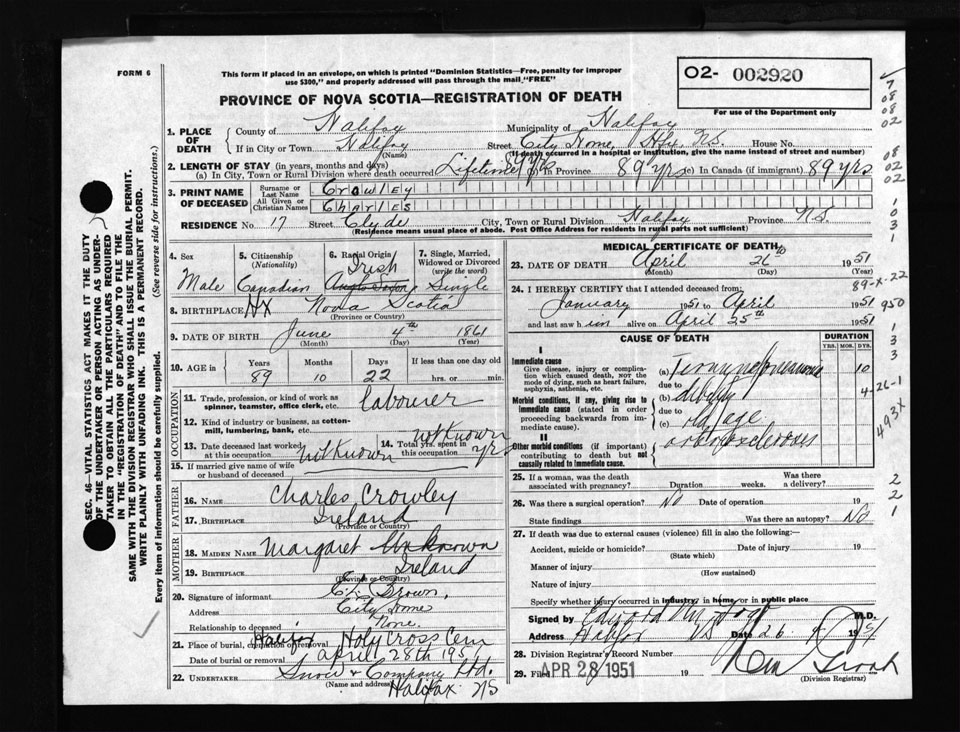 FORM 6
This form if placed in an envelope, on which is printed "Dominion Statistics—Free, penalty for improper
use $300," and properly addressed will pass through the mail "FREE"
O2- 002920
PROVINCE OF NOVA SCOTIA—REGISTRATION OF DEATH
For use of the Department only
1. PLACE OF DEATH
County of Halifax Municipality of Halifax
If in City or Town Halifax (Name) Street City Home, Hfx, N.S. House No.
(If death occurred in a hospital or institution, give the name instead of street and number)
2. LENGTH OF STAY (in years, months and days)
(a) In City, Town or Rural Division where death occurred Lifetime 89 yrs In Province 89 yrs (c) In Canada (if immigrant) 89 yrs
3. PRINT NAME OF DECEASED
Surname or Last Name Crowley
All Given or Christian Names Charles
RESIDENCE No. 17 Street Clyde City, Town or Rural Division Halifax Province N.S.
(Residence means usual place of abode. Post Office Address for residents in rural parts not sufficient)
4. Sex Male
5. Citizenship (Nationality) Canadian
6. Racial Origin Irish Anglo Saxon
7. Single, Married, Widowed or Divorced (write the word) Single
8. BIRTHPLACE Hx Nova Scotia
(Province or Country)
9. DATE OF BIRTH June 4th 1861
(Month) (Day) (Year)
10. AGE in Years 89 Months 10 Days 22 If less than one day old
hrs. or min.
OCCUPATION
11. Trade, profession, or kind of work as spinner, teamster, office clerk, etc. labourer
12. Kind of industry or business, as cotton-mill, lumbering, bank, etc.
13. Date deceased last worked at this occupation not Known
14. Total yrs. spent in this occupation not Known yrs
15. If married give name of wife or husband of deceased
FATHER
16. NAME Charles Crowley
17. BIRTHPLACE Ireland
(Province or Country)
MOTHER
18. MAIDEN NAME Margaret Unknown
19. BIRTHPLACE Ireland
(Province or Country)
20. Signature of informant Brown,
Address City Home
Relationship to deceased None.
21. Place of burial, cremation or removal Halifax Holy Cross Cem
Date of burial or removal April 28th 1951
22. UNDERTAKER Snow & Company Ltd.
(Name and address) Halifax NS
MEDICAL CERTIFICATE OF DEATH
23. DATE OF DEATH April 26th 1951
(Month) (Day) (Year)
24. I HEREBY CERTIFY that I attended deceased from:
January 1951 to April 1951
and last saw him alive on April 25th 1951
CAUSE OF DEATH
DURATION
YRS. MOS. DYS.
I
Immediate cause
Give disease, injury or complication which caused death, NOT the mode of dying, such as heart failure, asphyxia, asthenia, etc.
(a) 10
due to
Morbid conditions, if any, giving rise to immediate cause (stated in order proceeding backwards from immediate cause).
(b) debility
due to
(c) old age
II
Other morbid conditions (if important) contributing to death but not causally related to immediate cause.
arteriosclerosis
25. If a woman, was the death associated with pregnancy? Duration weeks. Was there a delivery?
26. Was there a surgical operation? No Date of operation 19
State findings Was there an autopsy? No
27. If death was due to external causes (violence) fill in also the following:—
Accident, suicide or homicide? Date of injury 19
(State which)
Manner of injury
(How sustained)
Nature of injury
Specify whether injury occurred in industry, in home, or in public place
Signed by Edward M. M.D.
Address Halifax NS Date 26 4 1951
28. Division Registrar's Record Number
29. Filed APR 28 1951
(Division Registrar)
SEC. 46—VITAL STATISTICS ACT MAKES IT THE DUTY
OF THE UNDERTAKER OR PERSON ACTING AS UNDER-
TAKER TO OBTAIN ALL THE PARTICULARS REQUIRED
IN THE "REGISTRATION OF DEATH" AND TO FILE THE
SAME WITH THE DIVISION REGISTRAR WHO SHALL ISSUE THE BURIAL PERMIT.
WRITE PLAINLY WITH UNFADING INK. THIS IS A PERMANENT RECORD.
Every item of information should be carefully supplied. (See reverse side for instructions.)
7
08
08
02
08
02
02
1
0
3
1
89-X-22
950
1
3
3
4-26-1
493X
2
2
1